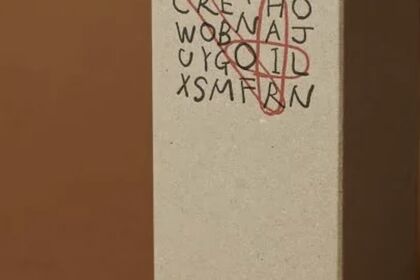 CREYHO
WOBNAJ
UYGOIL
XSMFRN